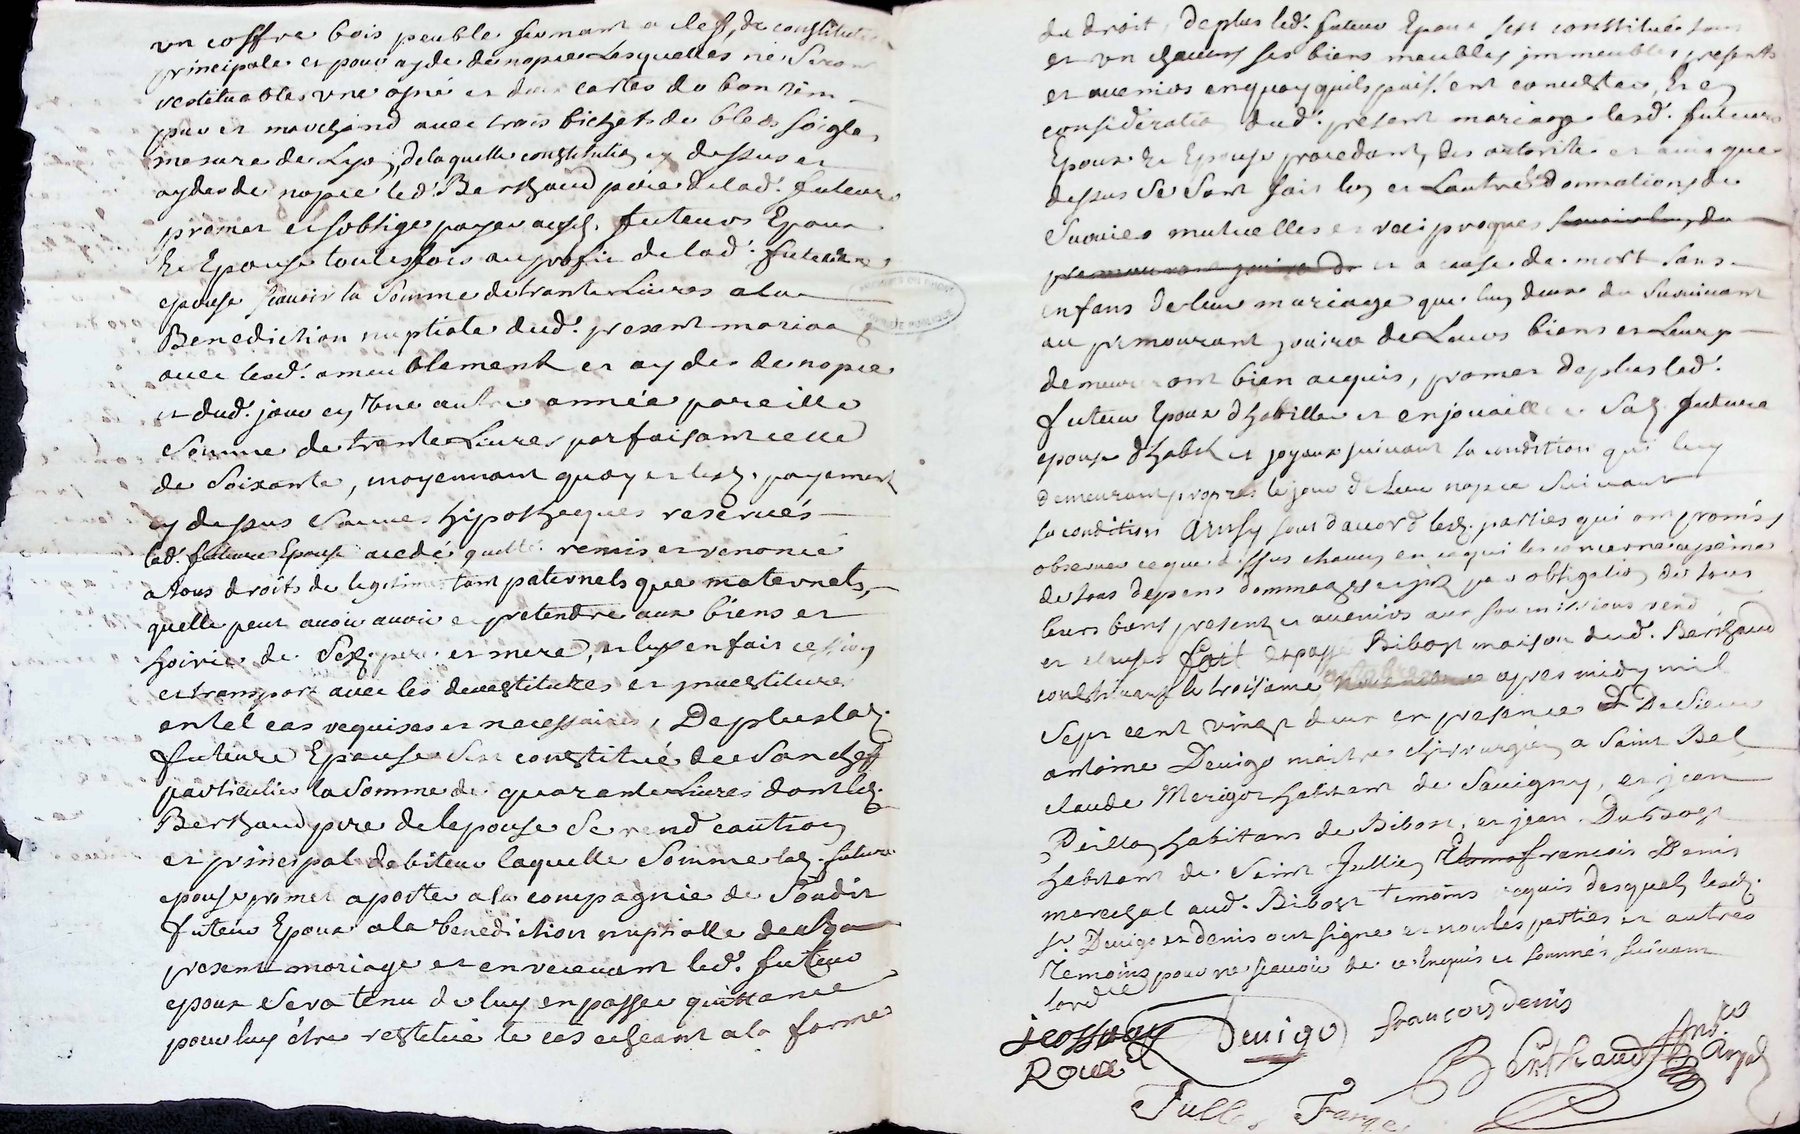 un coffre bois peuble fermant a clef, de constitution
principale et pour ayde de nopce Lesquelles ne Seront
restituables une anné et deux cartes du bon vin
pur et marchand avec trois bichets de bled soigle
mesure de Lyon, de laquelle constitution cy dessus et
aydes de nopce led. Berthaud pere de lad. future
promet et soblige payer ausd. futeurs Epoux
Et Epouse toutesfois au profit de lad. future
epouse scavoir la Somme de trante Livres a la
Benediction nuptiale dud. present mariage
avec lesd. ameublement et aydes de nopce
et dud. jour en Une autre année pareille
Somme de trente Livres parfaisant celle
de Soixante, moyennant quoy et lesd. payement
cy dessus Sauves hipotheques reservés
lad. future Epouse a cedé quitté remis et renoncé
a tous droits de legitime tant paternels que maternels,
quelle peut avoir avoir et pretendre aux biens et
hoirie de Sesd. pere et mere, et luy en fait cession
et transport avec les devestitures et investitures
en tel cas requises et necessaires, De plus lad.
future Epouse Sest constitué de Son chef
particulier la Somme de quarante Livres dont led.
Berthaud pere de lepouse Se rend caution
et principal debiteur laquelle Somme lad. future
epouse promet aporter a la compagnie de Sondit
futeur Epoux a la benediction nuptialle
present mariage et en recevant led. futeur
epoux Sera tenu de luy en passer quittance
pour luy être restitué le cas echeant a la forme
du droit, de plus led. futeur Epoux sest constitué tous
et un chacuns ses biens meubles immeubles presents
et avenirs en quoy quils puissent consister, Et en
consideration dud. present mariage lesd. futeurs
Epoux Et Epouse procedant, des autorité et avis que
dessus Se Sont fait lun et Lautre donnations de
Survies mutuelles et reciproques
et a cause de mort Sans
enfans de leur mariage que lun deux du Survivant
au premourant jouira de Leurs biens et Leurs
demeureront bien acquis, promet de plus led.
futeur Epoux dhabiller et enjouailler Sad. future
epouse dhabits et joyaux suivant sa condition qui luy
demeurant propres le jour de Leur nopce Suivant
sa condition Ainsy sont daccord lesd. parties qui ont promis
observer ce que dessus chacun en ce qui les concerne a peine
de tous depens dommages par obligation de tous
leurs biens presents et avenirs aux soumissions
et clauses fait et passé Bibost maison dud. Berthaud
le troisieme apres midy mil
Sept cent vingt deux en presence De Sieur
antoine Devigo maitre chirurgien a Saint Bel
claude Merigot habitant de Savigny, et jean
habitans de Bibost, et jean
habitant de Saint Jullien francois Denis
marechal aud. Bibost temoins requis desquels lesd.
sr. Devigo et denis ont signe et non les parties et autres
Temoins pour ne scavoir de ce enquis et sommés suivant
lordce
Devigo francois denis
Roux Berthaud